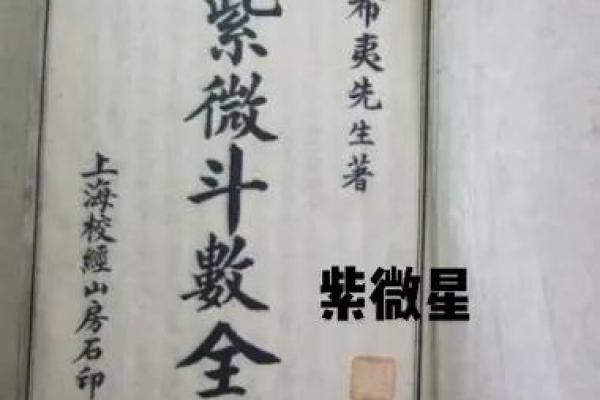 希夷先生著
紫微斗數全
上海校經山房石印
紫微星